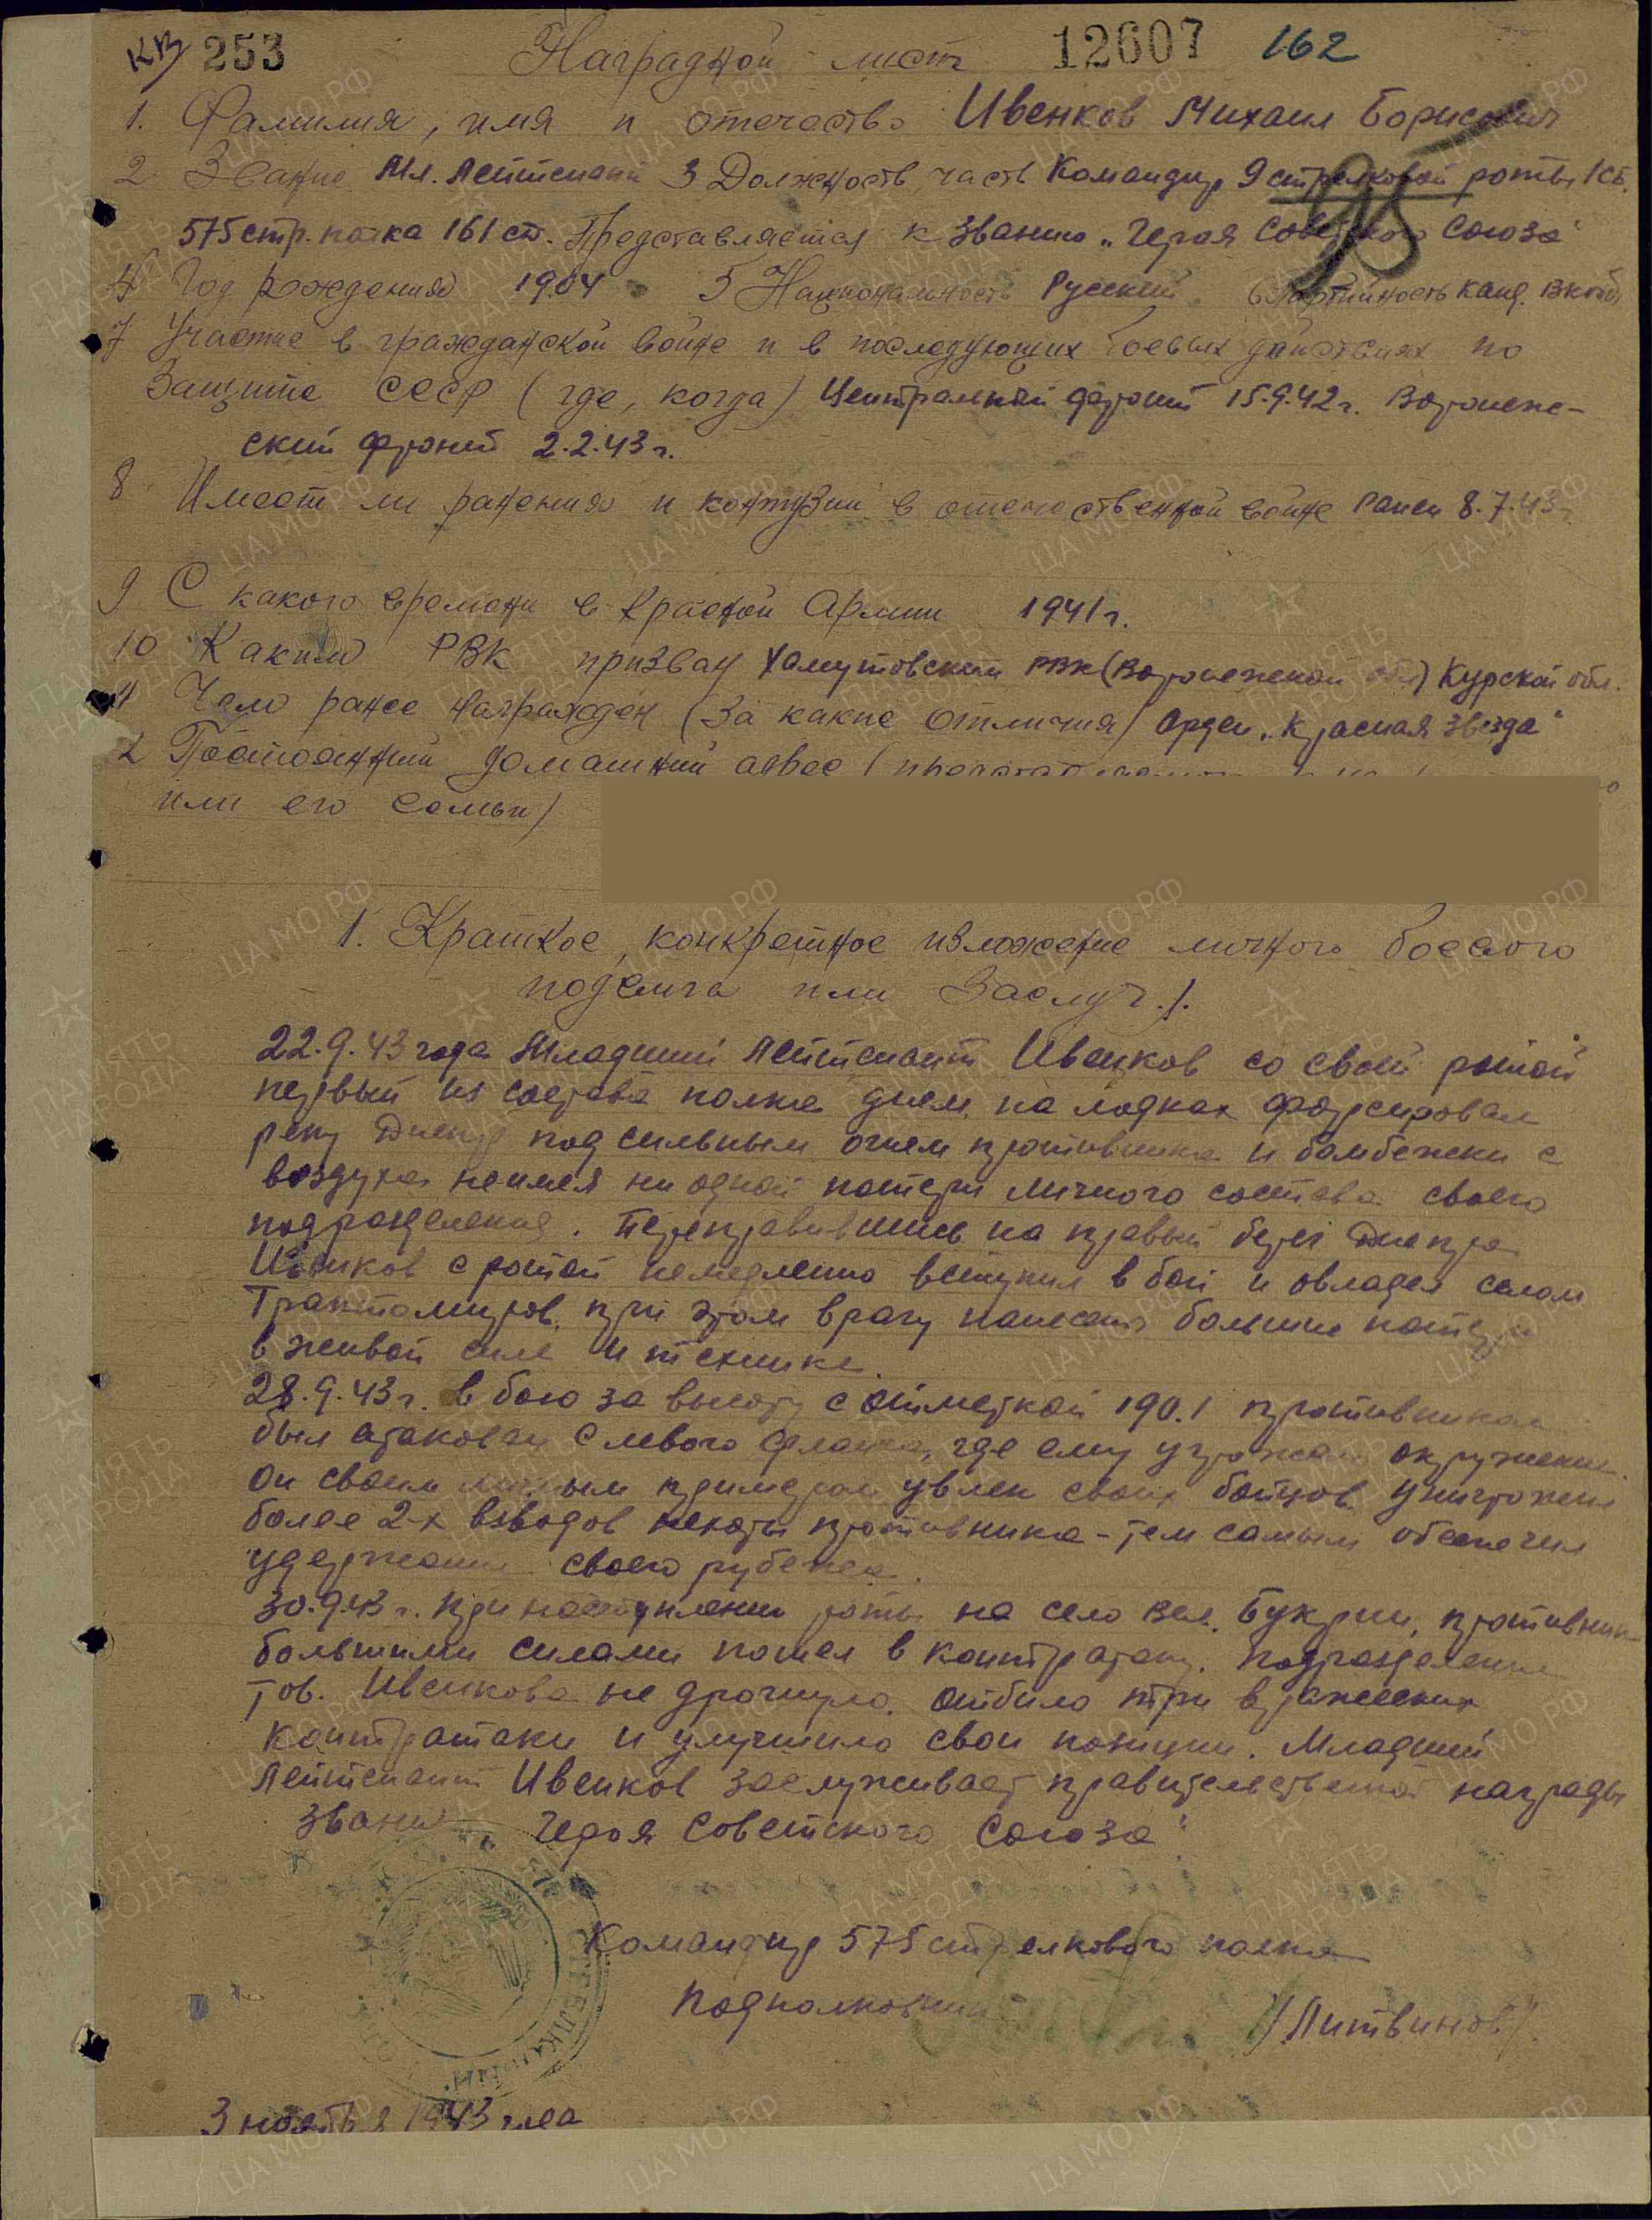 КВ 253 Наградной лист 12607 162
1. Фамилия, имя и отчество Ивенков Михаил Борисович
2 Звание Мл. Лейтенант 3 Должность часть Командир 9 стрелковой роты 1 сб.
575 стр. полка 161 сд. Представляется к званию „Героя Советского Союза"
4 Год рождения 1904 5 Национальность Русский 6 Партийность канд. ВКП(б)
7 Участие в гражданской войне и в последующих боевых действиях по
защите СССР (где, когда) Центральный фронт 15.9.42 г. Воронеж-
ский фронт 2.2.43 г.
8 Имеет ли ранения и контузии в отечественной войне Ранен 8.7.43 г.
9 С какого времени в Красной Армии 1941 г.
10 Каким РВК призван Хомутовским РВК (Воронежской обл) Курской обл.
11 Чем ранее награжден (за какие отличия) Орден „Красная Звезда"
2 Постоянный домашний адрес (
или его семьи)
1. Краткое, конкретное изложение личного боевого
подвига или заслуг./.
22.9.43 года Младший Лейтенант Ивенков со своей ротой
первый из состава полка днем на лодках форсировал
реку Днепр под сильным огнем противника и бомбежки с
воздуха не имея ни одной потери личного состава своего
подразделения. Переправившись на правый берег Днепра
Ивенков с ротой немедленно вступил в бой и овладел селом
Трактомиров, при этом врагу нанесены большие потери
в живой силе и технике.
28.9.43 г. в бою за высоту с отметкой 190.1 противником
был атакован с левого фланга, где ему угрожало окружение.
Он своим личным примером увлек своих бойцов уничтожил
более 2-х взводов пехоты противника - тем самым обеспечил
удержание своего рубежа.
30.9.43 г. при наступлении роты на село Вел. Букрин, противник
большими силами пошел в контратаку. Подразделение
тов. Ивенкова не дрогнуло. отбило три вражеских
контратаки и улучшило свои позиции. Младший
Лейтенант Ивенков заслуживает правительственной награды
звания Героя Советского Союза"
Командир 575 стрелкового полка
Подполковник /Литвинов/
3 ноября 1943 года